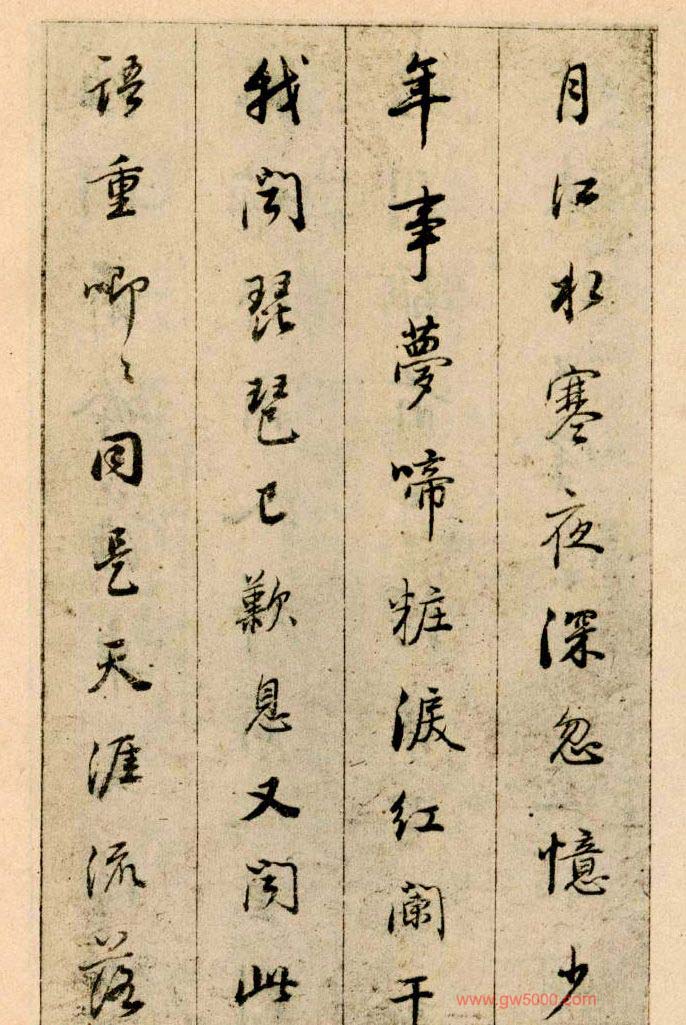 月江水寒夜深忽憶少
年事夢啼粧淚紅闌干
我聞琵琶已歎息又聞此
語重唧〻同是天涯流落
www.gw5000.com